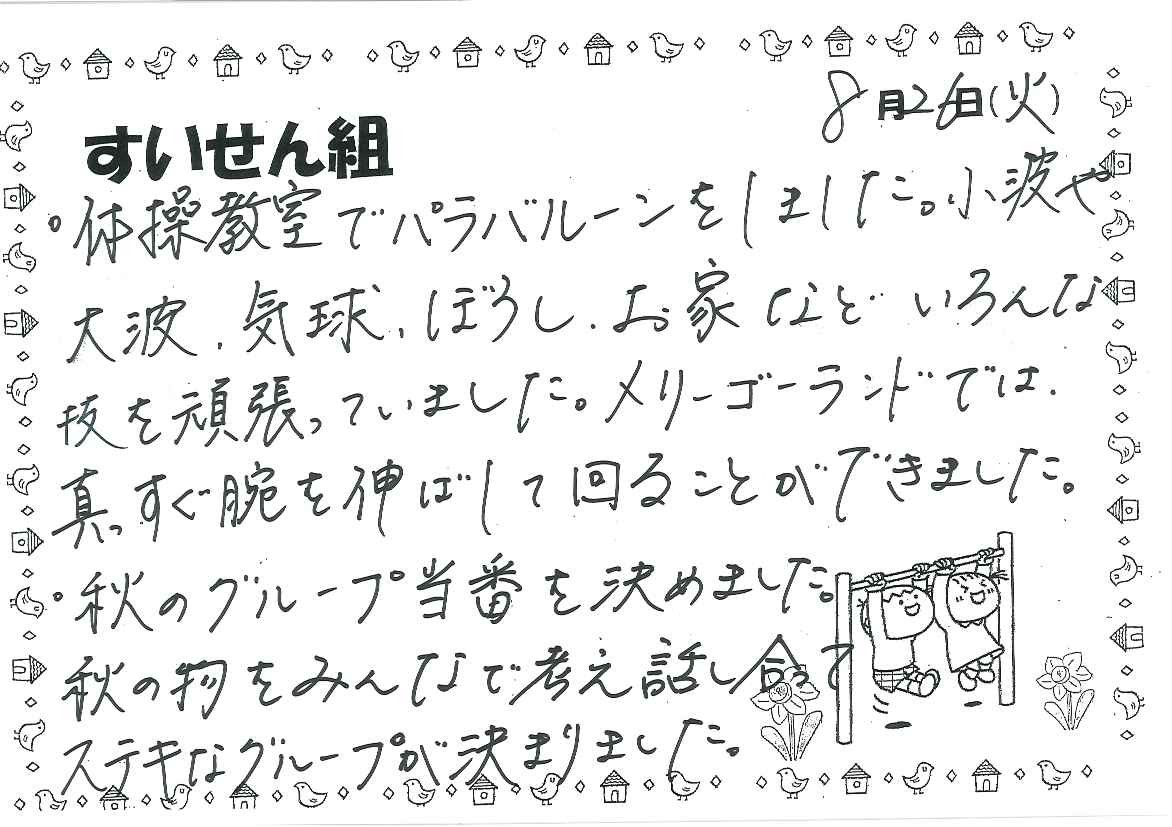 8月26日(火)
すいせん組
。体操教室でパラバルーンをしました。小波や
大波、気球、ぼうし、お家などいろんな
技を頑張っていました。メリーゴーランドでは、
真っすぐ腕を伸ばして回ることができました。
。秋のグループ当番を決めました。
秋の物をみんなで考え話し合って
ステキなグループが決まりました。